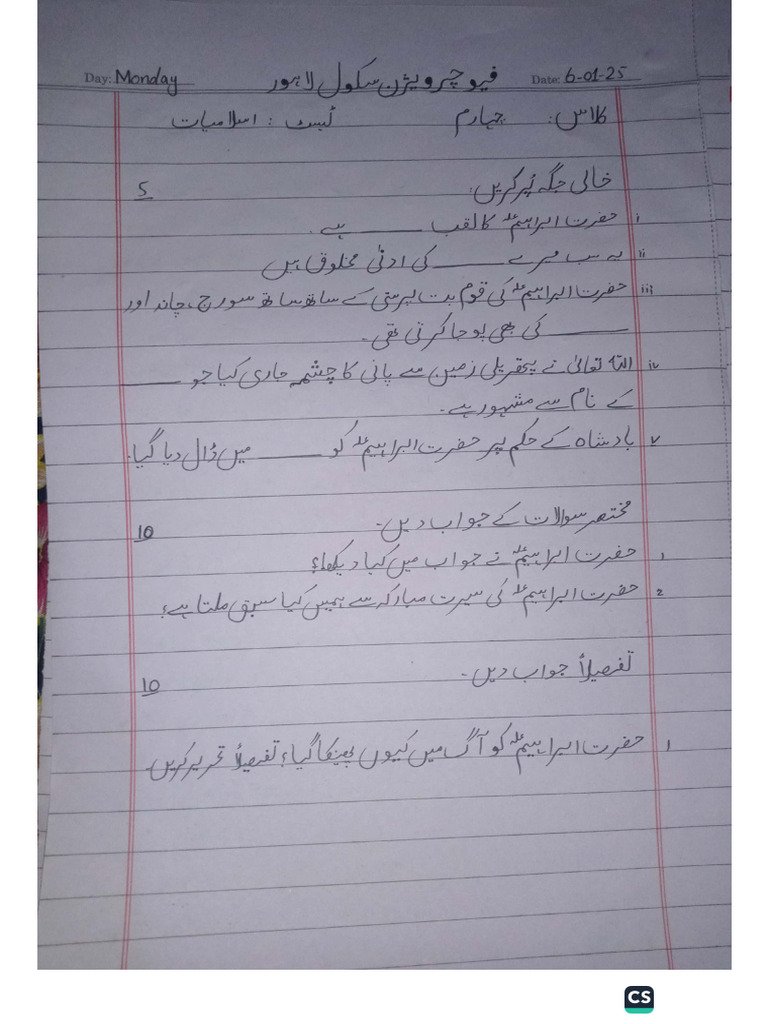 Day: Monday فیوچر ویژن سکول لاہور Date: 6-01-25
کلاس: چہارم ٹیسٹ: اسلامیات
خالی جگہ پُر کریں: 5
i حضرت ابراہیمؑ کا لقب ______ ہے۔
ii یہ سب میرے ______ کی ادنیٰ مخلوق ہیں
iii حضرت ابراہیمؑ کی قوم بت پرستی کے ساتھ ساتھ سورج، چاند اور
______ کی بھی پوجا کرتی تھی۔
iv اللہ تعالیٰ نے پتھریلی زمین سے پانی کا چشمہ جاری کیا جو ______
کے نام سے مشہور ہے۔
v بادشاہ کے حکم پر حضرت ابراہیمؑ کو ______ میں ڈال دیا گیا۔
مختصر سوالات کے جواب دیں۔ 10
1 حضرت ابراہیمؑ نے جواب میں کیا دیکھا؟
2 حضرت ابراہیمؑ کی سیرت مبارکہ سے ہمیں کیا سبق ملتا ہے؟
تفصیلاً جواب دیں۔ 10
1 حضرت ابراہیمؑ کو آگ میں کیوں پھینکا گیا؟ تفصیلاً تحریر کریں۔
CS